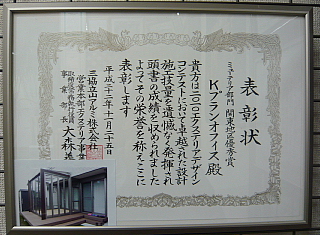 表彰状
ミュゼリア部門 関東地区優秀賞
Kプランオフィス 殿
貴方は二〇一〇エクステリアデザイン
コンテストにおいて卓越された設計
施工技量を遺憾なく発揮され
頭書の成績を収められました
よってその栄誉を称えここに
表彰します
平成二十二年十一月二十五日
三協立山アルミ株式会社
営業本部エクステリア事業
事業部長 大森